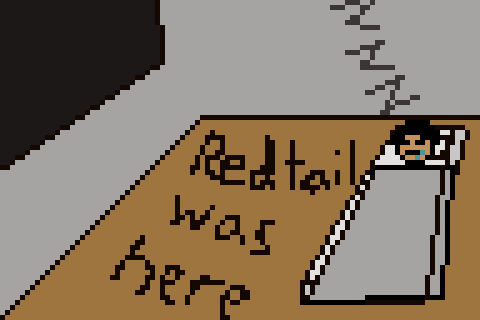 Z
Z
Z
Redtail
was
here